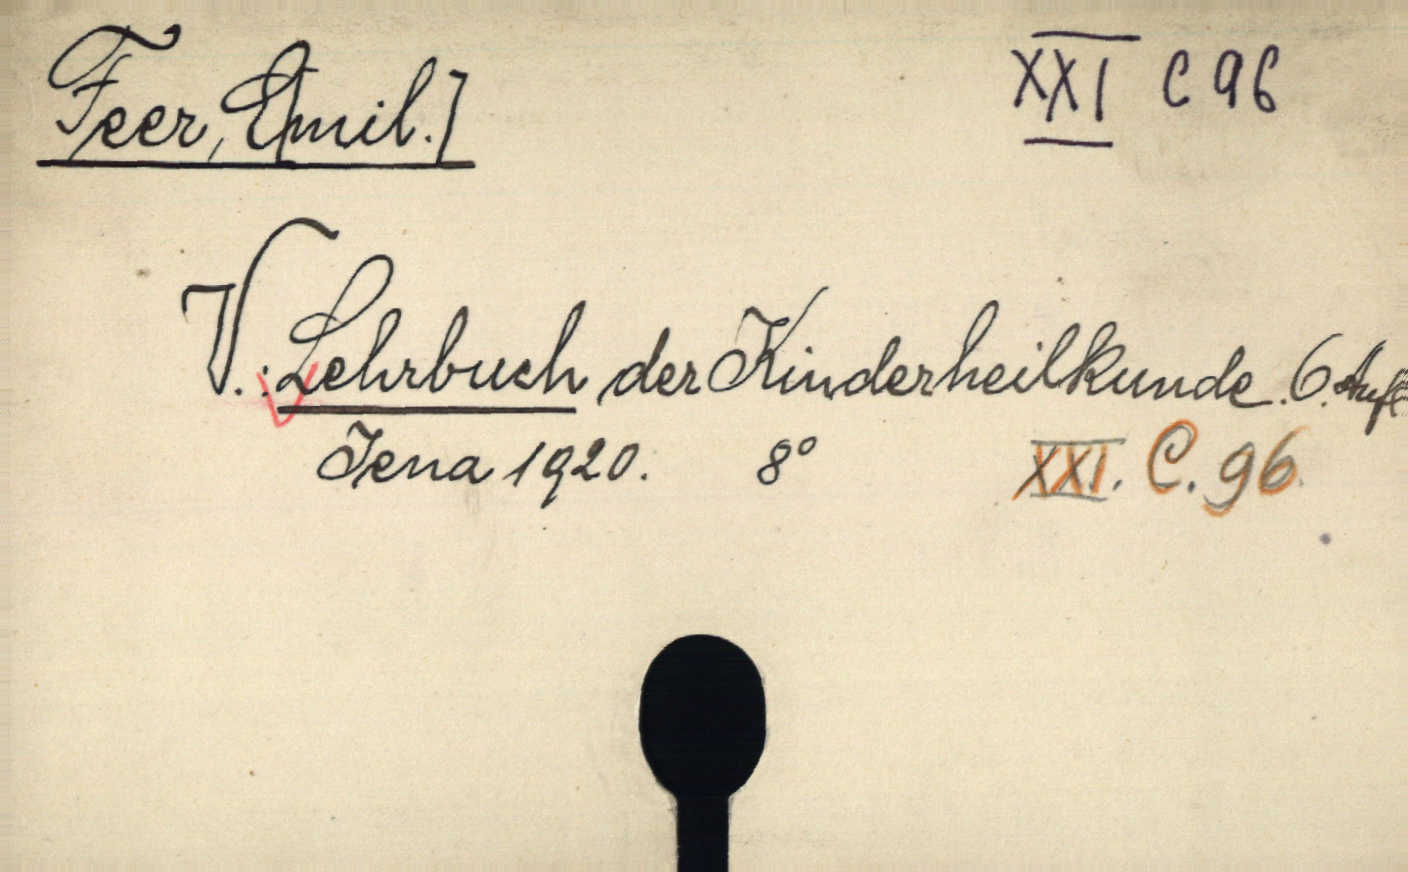 Feer, Emil.] XXI C 96
V.: Lehrbuch der Kinderheilkunde. 6. Aufl
Jena 1920. 8° XXI. C. 96.